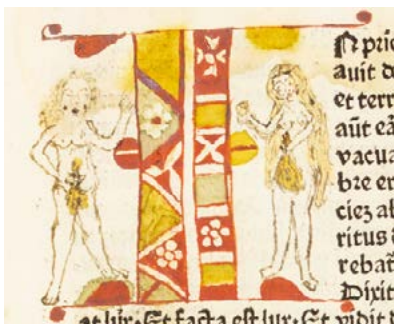 N pric
avit d
et terr
aūt eā
vacua
bre er
ciez ab
ritus
rebat
Dixit
lux·Et facta est lux·Et vidit